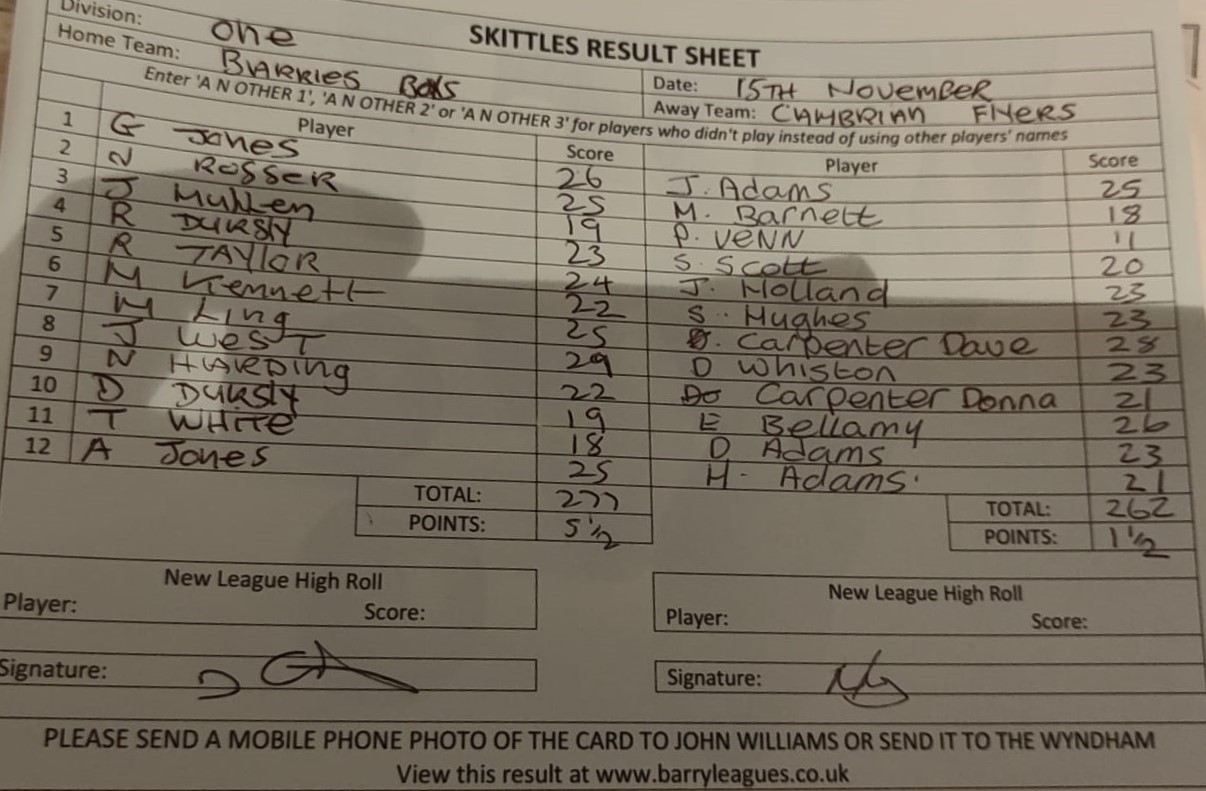 SKITTLES RESULT SHEET
Division: One
Home Team: BARRIES BOYS
Date: 15TH November
Away Team: CAMBRIAN FLYERS
Enter 'A N OTHER 1', 'A N OTHER 2' or 'A N OTHER 3' for players who didn't play instead of using other players' names
Player Score Player Score
1 G Jones 26 J. Adams 25
2 N ROSSER 25 M. Barnett 18
3 J Mullen 19 P. VENN 11
4 R DURSLY 23 S. Scott 20
5 R TAYLOR 24 J. Holland 23
6 M Kennett 22 S. Hughes 23
7 M Ling 25 D. Carpenter Dave 28
8 J WEST 29 D Whiston 23
9 N HARDING 22 Do Carpenter Donna 21
10 D DURSLY 19 E Bellamy 26
11 T WHITE 18 D Adams 23
12 A Jones 25 H. Adams. 21
TOTAL: 277 TOTAL: 262
POINTS: 5 1/2 POINTS: 1 1/2
New League High Roll New League High Roll
Player: Score: Player: Score:
Signature: Signature:
PLEASE SEND A MOBILE PHONE PHOTO OF THE CARD TO JOHN WILLIAMS OR SEND IT TO THE WYNDHAM
View this result at www.barryleagues.co.uk